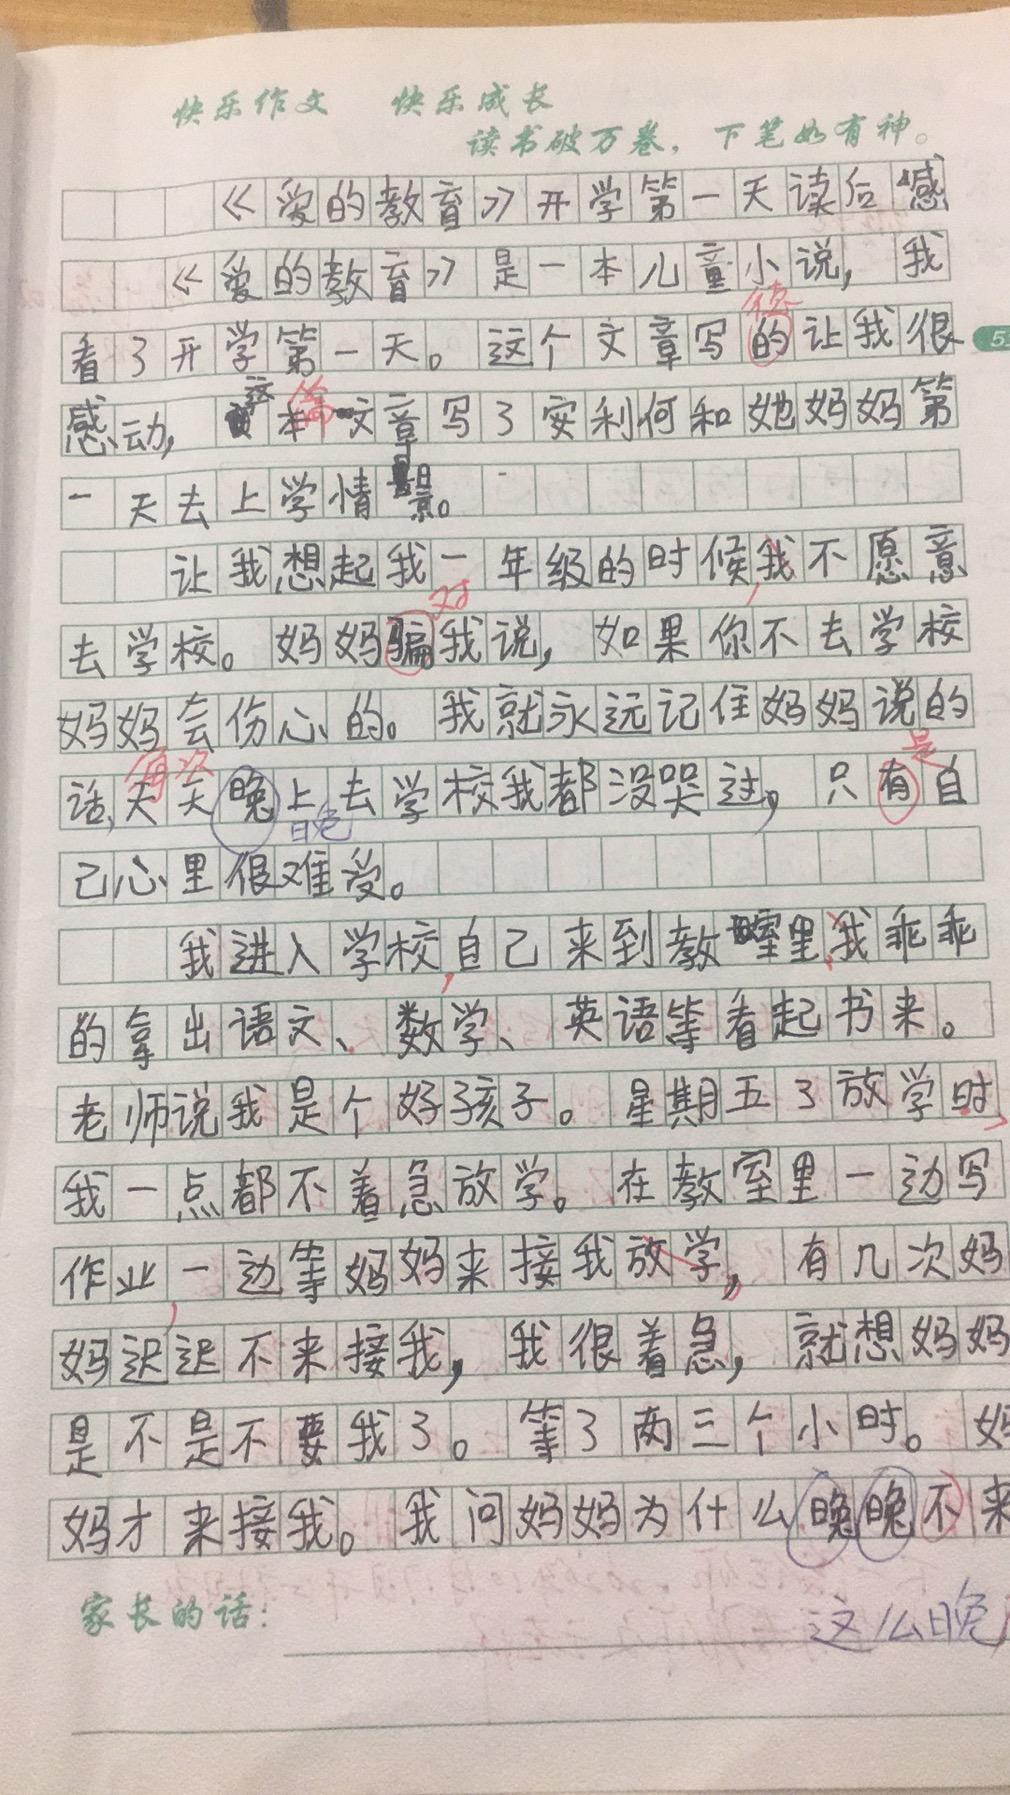 快乐作文 快乐成长
读书破万卷，下笔如有神。
《爱的教育》开学第一天读后感
《爱的教育》是一本儿童小说，我
得
看了开学第一天。这个文章写的让我很
5
这 篇
感动，本文章写了安利何和她妈妈第
一天去上学情景。
让我想起我一年级的时候，我不愿意
对
去学校。妈妈骗我说，如果你不去学校
妈妈会伤心的。我就永远记住妈妈说的
每次 是
话，天天晚上去学校我都没哭过，只有自
晚
己心里很难受。
我进入学校，自己来到教室里，我乖乖
的拿出语文、数学、英语等看起书来。
老师说我是个好孩子。星期五了放学时，
我一点都不着急放学。在教室里一边写
作业，一边等妈妈来接我放学，有几次妈
妈迟迟不来接我，我很着急，就想妈妈
是不是不要我了。等了两三个小时。妈
妈才来接我。我问妈妈为什么晚晚不来
家长的话：
这么晚